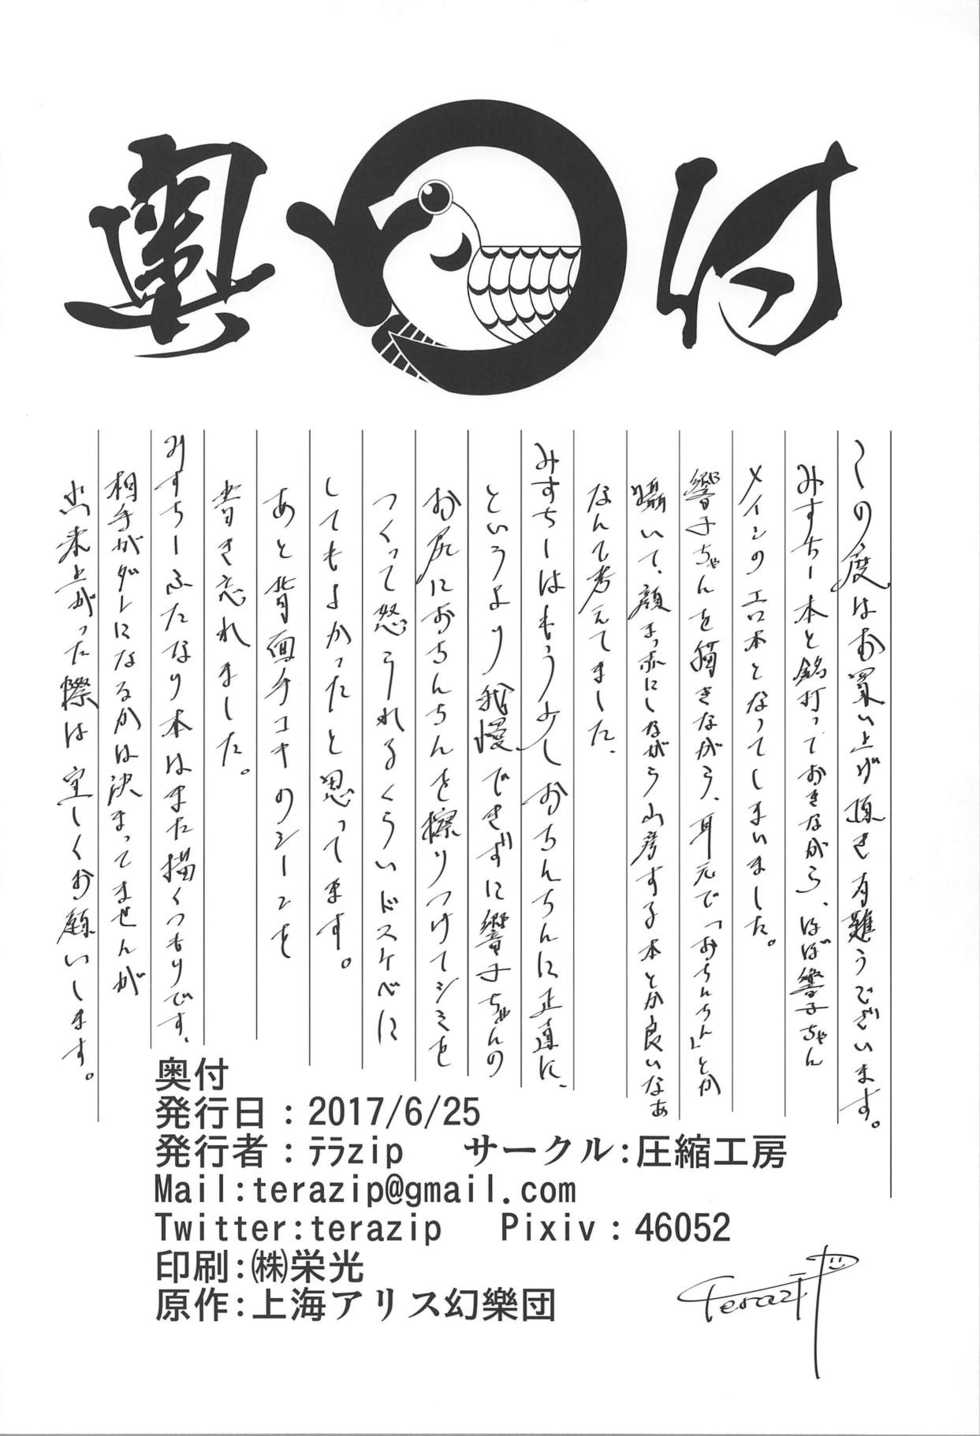 奥付
この度はお買い上げ頂き有難うございます。
みすちー本と銘打っておきながら、ほぼ響子ちゃん
メインのエロ本となってしまいました。
響子ちゃんを描きながら、耳元で「おちんちん」とか
囁いて、顔まっ赤にしながら山彦する本とか良いなぁ
なんて考えてました、
みすちーはもう少しおちんちんに正直に、
というより我慢できずに響子ちゃんの
お尻におちんちんを擦りつけてシミを
つくって怒られるくらいドスケベに
してもよかったと思ってます。
あと背面手コキのシーンを
書き忘れました。
みすちーふたなり本はまた描くつもりです、
相手がダレになるかは決まってませんが
出来上がった際は宜しくお願いします。
奥付
発行日：2017/6/25
発行者：ﾃﾗzip サークル:圧縮工房
Mail:terazip@gmail.com
Twitter:terazip Pixiv：46052
印刷:㈱栄光
原作:上海アリス幻樂団
Terazip